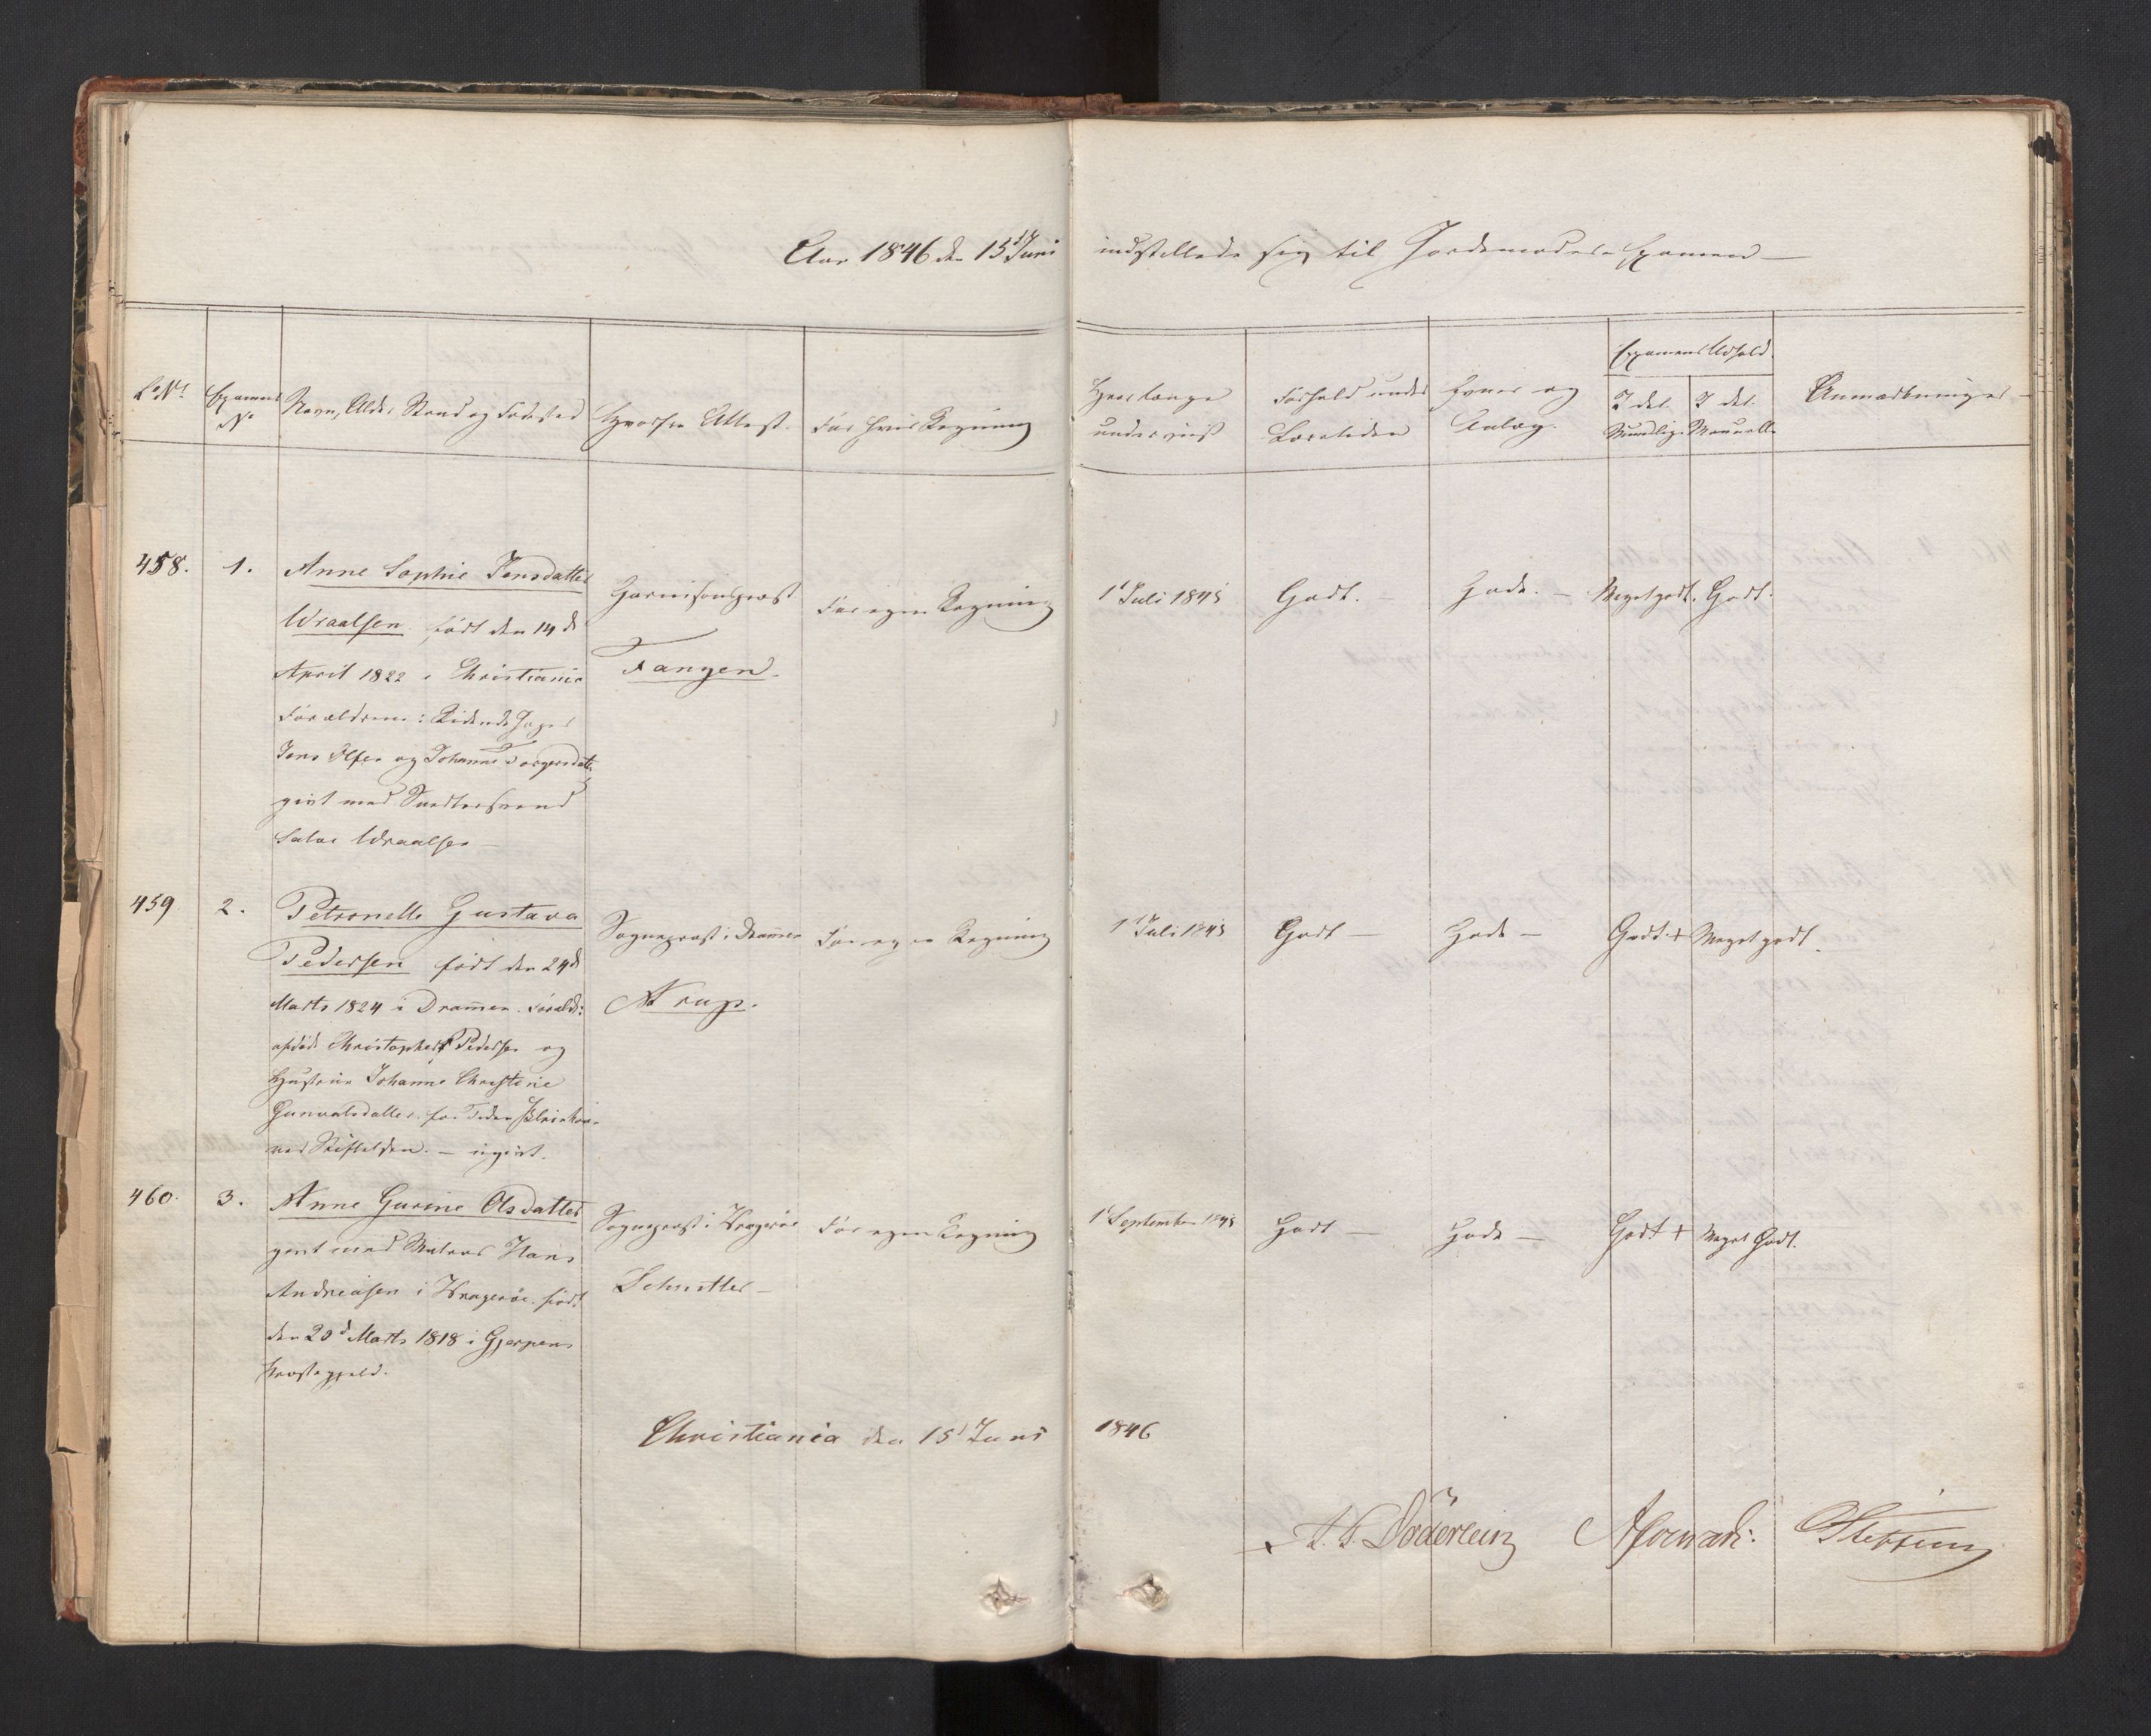 Aar 1846 den 15d Juni indstillede sig til Jordemoder-Examen —
L. No.
Examens No
Navn, Alder, Stand og Fødested
Hvorfra Attest.
For hvis Regning
Hvorlænge underviist
Forhold under Læretiden
Evner og Anlæg.
Examens Udfald.
I del. Mundlige
I del. Manuelle
Anmærkninger —
458.
1.
Anne Sophie Jensdatter
Wraalsen født den 14de
April 1822 i Christiania
Forældrene: Ridende Jæger
Jens Olsen og Johanne Torgersdatr
givt med
Wraalsen —
Garnisonsprest
Fangen.
For egen Regning
1 Juli 1845
Godt. —
Gode. —
Meget godt.
Godt.
459
2.
Petronelle Gustava
Pedersen født den 24de
Marts 1824 i Dramen. Foræld:
afdøde Christopher Pedersen og
Hustrue Johanne Christine
Gunvalsdatter. for Tiden
ved Stiftelsen. — ugivt.
Sogneprest i Dramen
Arup.
For egen Regning
1 Juli 1845
Godt —
Gode —
Godt +
Meget godt.
460.
3.
Anne Gurine Olsdatter
givt med Matros Hans
Andreasen i Kragerøe. født
den 20d Marts 1818 i Gjerpens
Præstegjeld.
Sogneprest i Kragerøe
Schutter —
For egen Regning
1 September 1845
Godt —
Gode —
Godt +
Meget Godt.
Christiania den 15d Juni 1846
Döderlein
Conradi.
Steffens